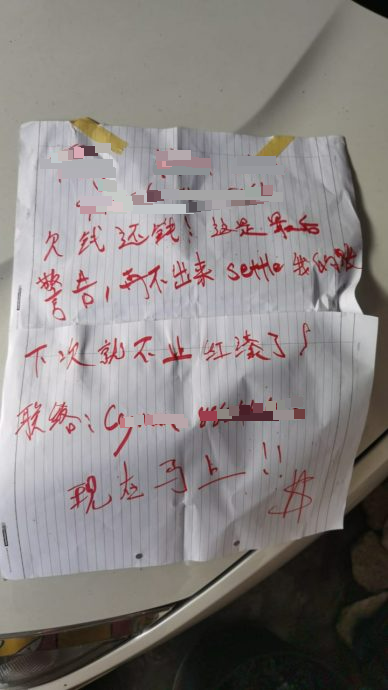 欠钱还钱！这是最后
警告，再不出来 settle 我的账
下次就不止红漆了！
联络：
现在马上！！
$